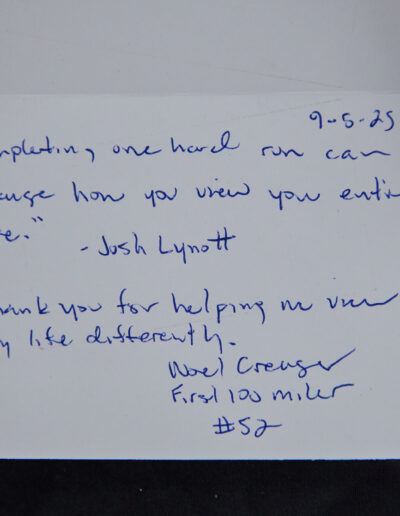 9-5-25
mpleting one hard run can
ange how you view your enti
e."
- Josh Lynott
hank you for helping me view
y life differently.
Noel Creager
First 100 miler
#52